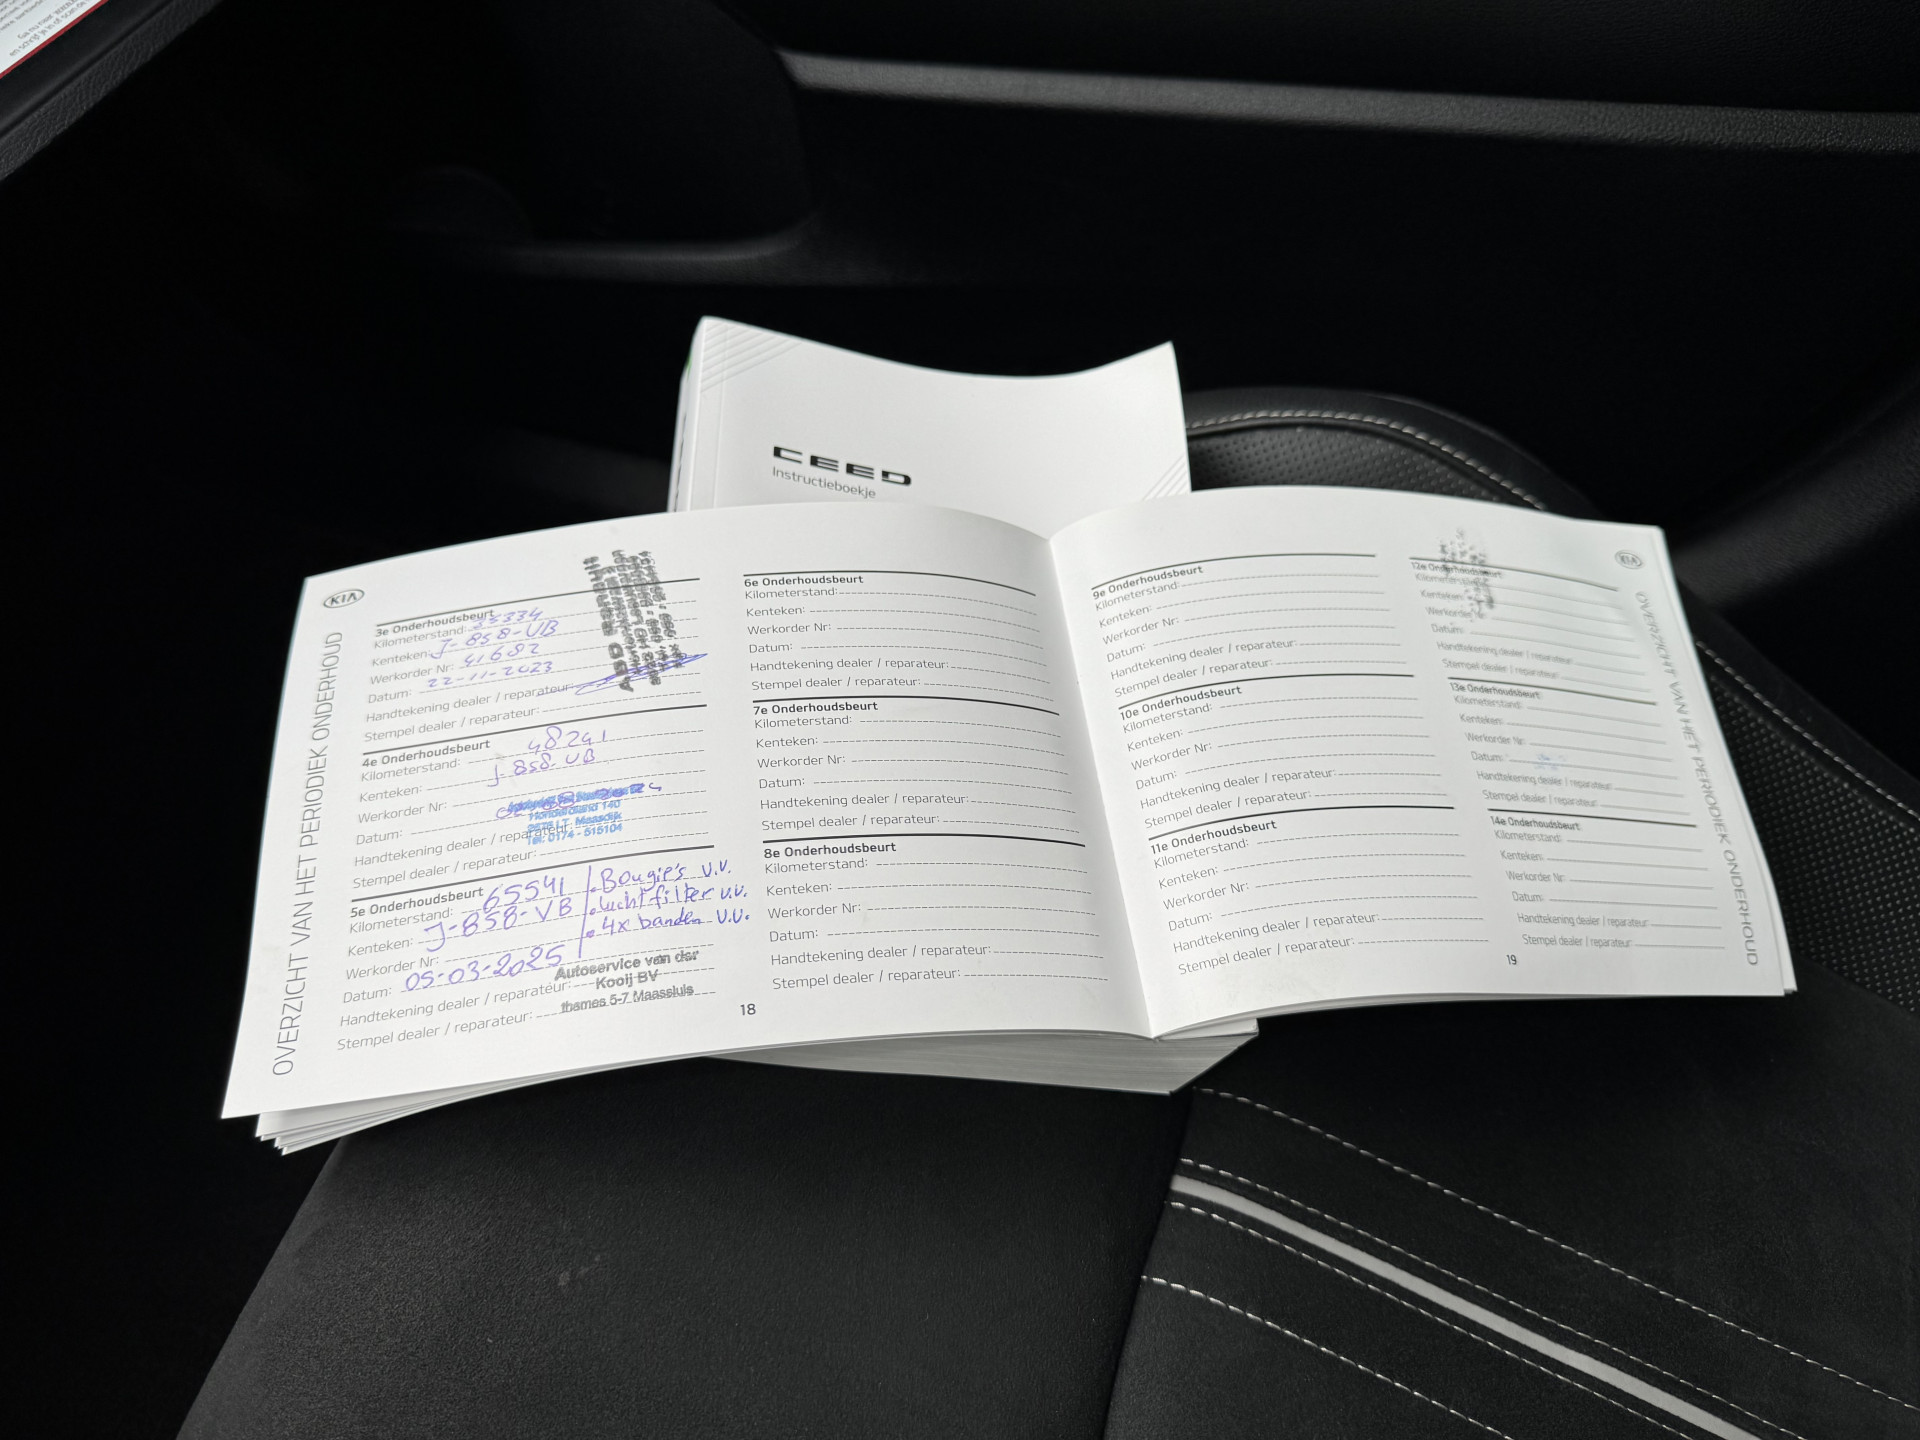 CEED
Instructieboekje
KIA
OVERZICHT VAN HET PERIODIEK ONDERHOUD
3e Onderhoudsbeurt
Kilometerstand: 35334
Kenteken: J-858-UB
Werkorder Nr: 41682
Datum: 22-11-2023
Handtekening dealer / reparateur:
Stempel dealer / reparateur:
4e Onderhoudsbeurt
Kilometerstand: 48241
Kenteken: J-858-UB
Werkorder Nr:
Datum:
Honderdland 140
Maasdijk
Handtekening dealer / reparateur:
Tel: 0174 - 515104
Stempel dealer / reparateur:
5e Onderhoudsbeurt
Kilometerstand: 65541
Kenteken: J-858-VB
Werkorder Nr:
Datum: 05-03-2025
Handtekening dealer / reparateur:
Stempel dealer / reparateur:
Bougie's v.v.
luchtfilter v.v.
4x banden v.v.
Autoservice van der
Kooij BV
thames 5-7 Maassluis
6e Onderhoudsbeurt
Kilometerstand:
Kenteken:
Werkorder Nr:
Datum:
Handtekening dealer / reparateur:
Stempel dealer / reparateur:
7e Onderhoudsbeurt
Kilometerstand:
Kenteken:
Werkorder Nr:
Datum:
Handtekening dealer / reparateur:
Stempel dealer / reparateur:
8e Onderhoudsbeurt
Kilometerstand:
Kenteken:
Werkorder Nr:
Datum:
Handtekening dealer / reparateur:
Stempel dealer / reparateur:
18
9e Onderhoudsbeurt
Kilometerstand:
Kenteken:
Werkorder Nr:
Datum:
Handtekening dealer / reparateur:
Stempel dealer / reparateur:
10e Onderhoudsbeurt
Kilometerstand:
Kenteken:
Werkorder Nr:
Datum:
Handtekening dealer / reparateur:
Stempel dealer / reparateur:
11e Onderhoudsbeurt
Kilometerstand:
Kenteken:
Werkorder Nr:
Datum:
Handtekening dealer / reparateur:
Stempel dealer / reparateur:
12e Onderhoudsbeurt
Kilometerstand:
Kenteken:
Werkorder
Datum:
Handtekening dealer / reparateur:
Stempel dealer / reparateur:
13e Onderhoudsbeurt
Kilometerstand:
Kenteken:
Werkorder Nr:
Datum:
Handtekening dealer / reparateur:
Stempel dealer / reparateur:
14e Onderhoudsbeurt
Kilometerstand:
Kenteken:
Werkorder Nr:
Datum:
Handtekening dealer / reparateur:
Stempel dealer / reparateur:
19
KIA
OVERZICHT VAN HET PERIODIEK ONDERHOUD